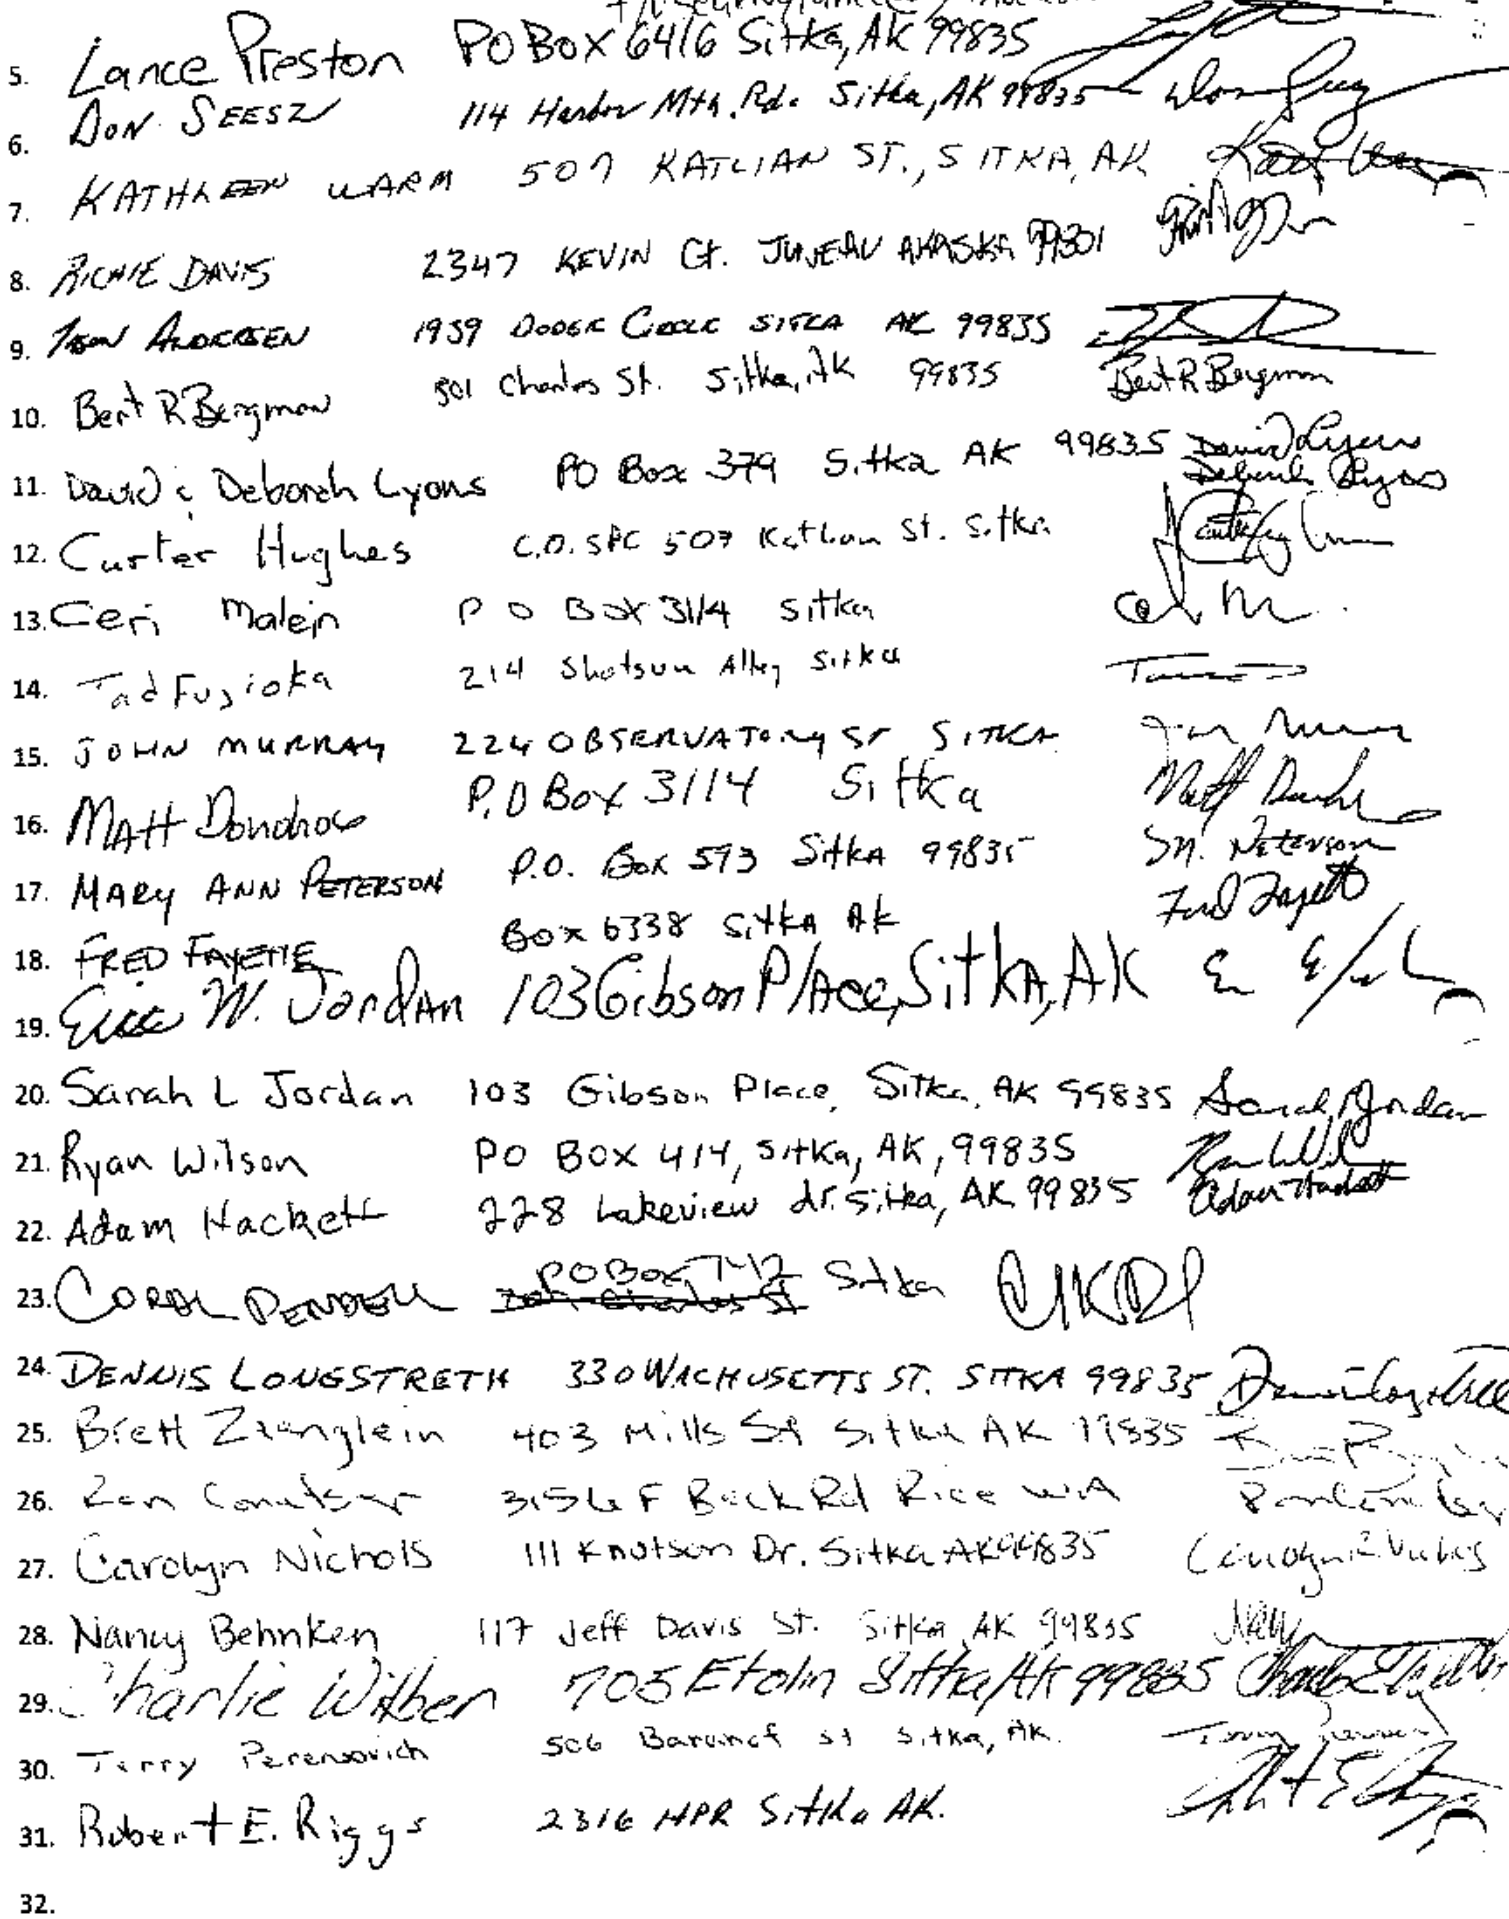 5. Lance Preston PO Box 6416 Sitka, AK 99835
6. Don Seesz 114 Harbor Mtn. Rd. Sitka, AK 99835
7. KATHLEEN WARM 507 KATLIAN ST., SITKA, AK
8. RICHIE DAVIS 2347 KEVIN Ct. JUNEAU ALASKA 99801
9. ANDERSEN 1939 DODGE SITKA AK 99835
10. Bert R Bergman 501 Charles St. Sitka, Ak 99835 Bert R Bergman
11. David & Deborah Lyons PO Box 379 Sitka AK 99835 David Lyons
Deborah Lyons
12. Carter Hughes C.O. SPC 507 Katlian St. Sitka
13. Ceri Malein P O Box 3114 Sitka
14. Tad Fujioka 214 Shotgun Alley Sitka
15. JOHN MURRAY 224 OBSERVATORY ST SITKA
16. MAtt Donohoe P.O Box 3114 Sitka
17. MARY ANN PETERSON P.O. Box 593 SitkA 99835 M. Peterson
18. FRED FAYETTE Box 6338 SitkA Ak Fred Fayette
19. Eric W. JordAn 103 Gibson PlAce, SitkA, AK
20. Sarah L Jordan 103 Gibson Place, Sitka, AK 99835 Sarah Jordan
21. Ryan Wilson PO BOX 414, Sitka, AK, 99835
22. Adam Hackett 228 Lakeview dr. Sitka, AK 99835 Adam Hackett
23. CORAL PENDELL PO Box Sitka
24. DENNIS LONGSTRETH 330 WACHUSETTS ST. SITKA 99835
25. Brett Zaenglein 403 Mills St Sitka AK 99835
26. Ron 3156 F Rd Rice WA
27. Carolyn Nichols 111 Knutson Dr. Sitka AK 99835 Carolyn Nichols
28. Nancy Behnken 117 Jeff Davis St. Sitka AK 99835
29. Charlie Wilber 705 Etolin Sitka, AK 99835
30. Terry Perensovich 506 Baranof st Sitka, Ak.
31. Robert E. Riggs 2316 HPR Sitka AK.
32.